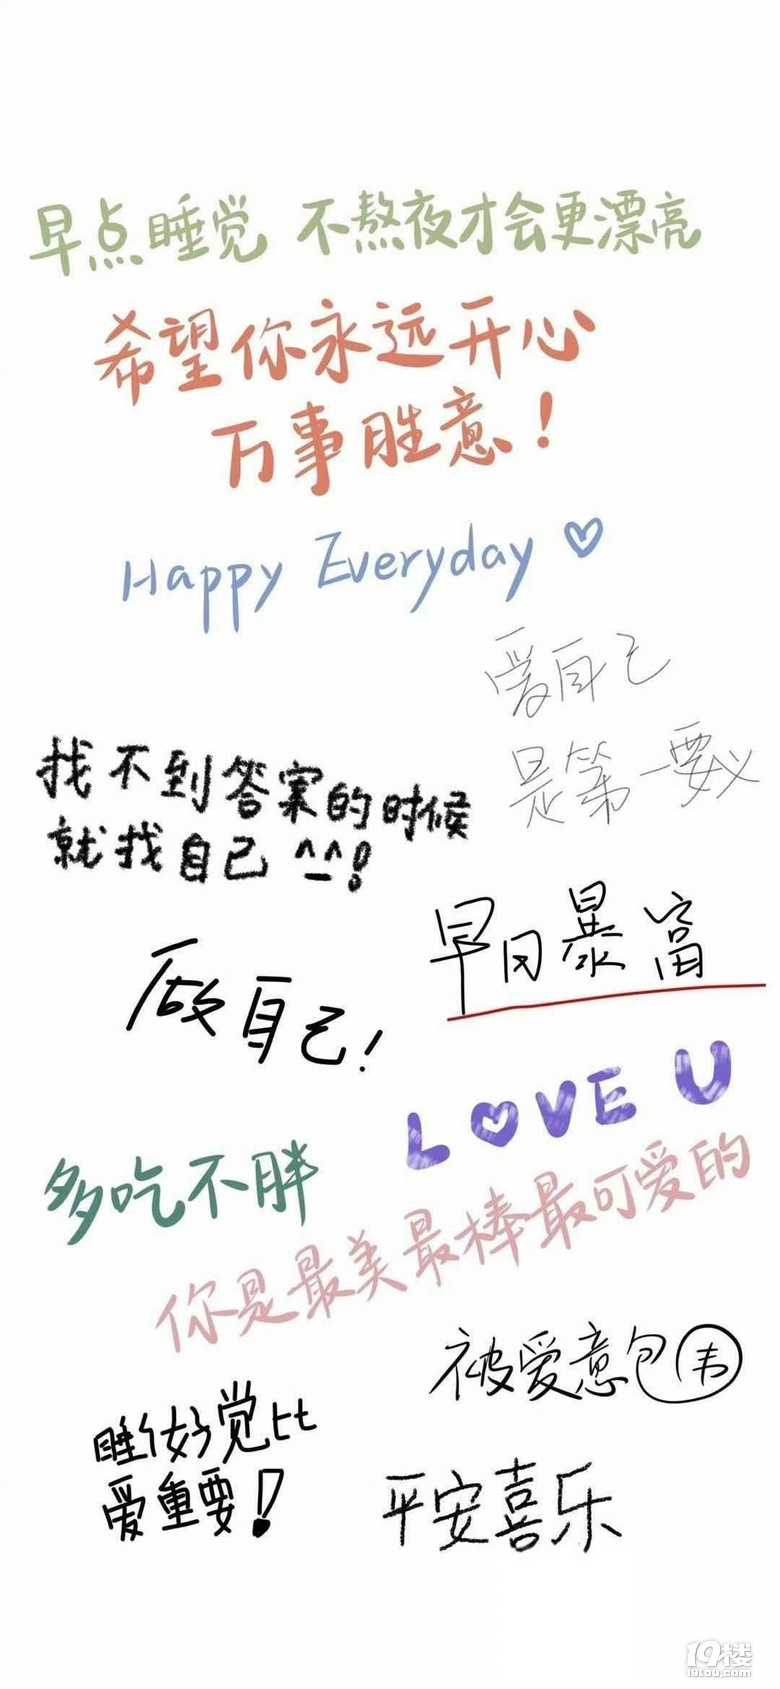 早点睡觉 不熬夜才会更漂亮
希望你永远开心
万事胜意！
Happy Everyday ♡
爱自己
是第一要义
找不到答案的时候
就找自己 ^_^!
做自己！
早日暴富
LOVE U
多吃不胖
你是最美最棒最可爱的
被爱意包围
睡个好觉比
爱重要！
平安喜乐
19楼
19lou.com